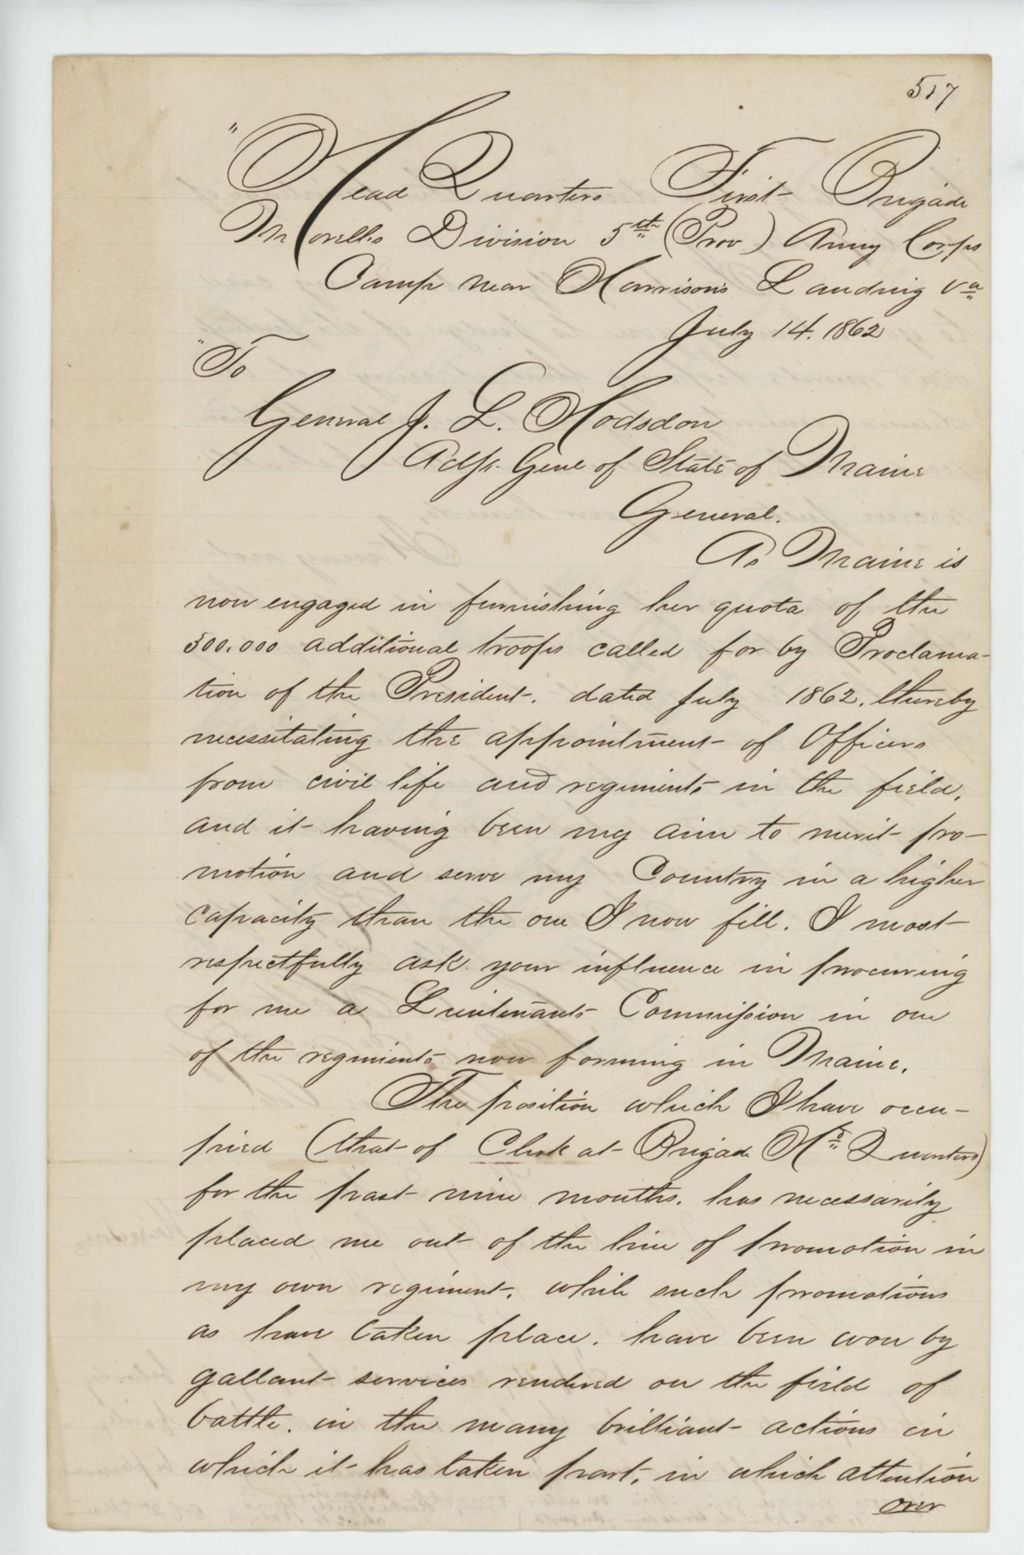 517
"Head Quarters First Brigade
Morells Division 5th (Prov) Army Corps
Camp near Harrison's Landing Va
July 14. 1862
"To
General J. L. Hodsdon
Adjt. Genl of State of Maine
General.
As Maine is
now engaged in furnishing her quota of the
300.000 additional troops called for by Proclama-
tion of the President. dated July 1862, thereby
necessitating the appointment of Officers
from civil life and regiments in the field,
and it having been my aim to merit pro-
motion and serve my Country in a higher
capacity than the one I now fill. I most
respectfully ask your influence in procuring
for me a Lieutenants Commission in one
of the regiments now forming in Maine.
The position which I have occu-
pied (that of Clerk at Brigade Hd Quarters)
for the past nine months. has necessarily
placed me out of the line of promotion in
my own regiment, while such promotions
as have taken place. have been won by
gallant services rendered on the field of
battle. in the many brilliant actions in
which it has taken part, in which attention
over